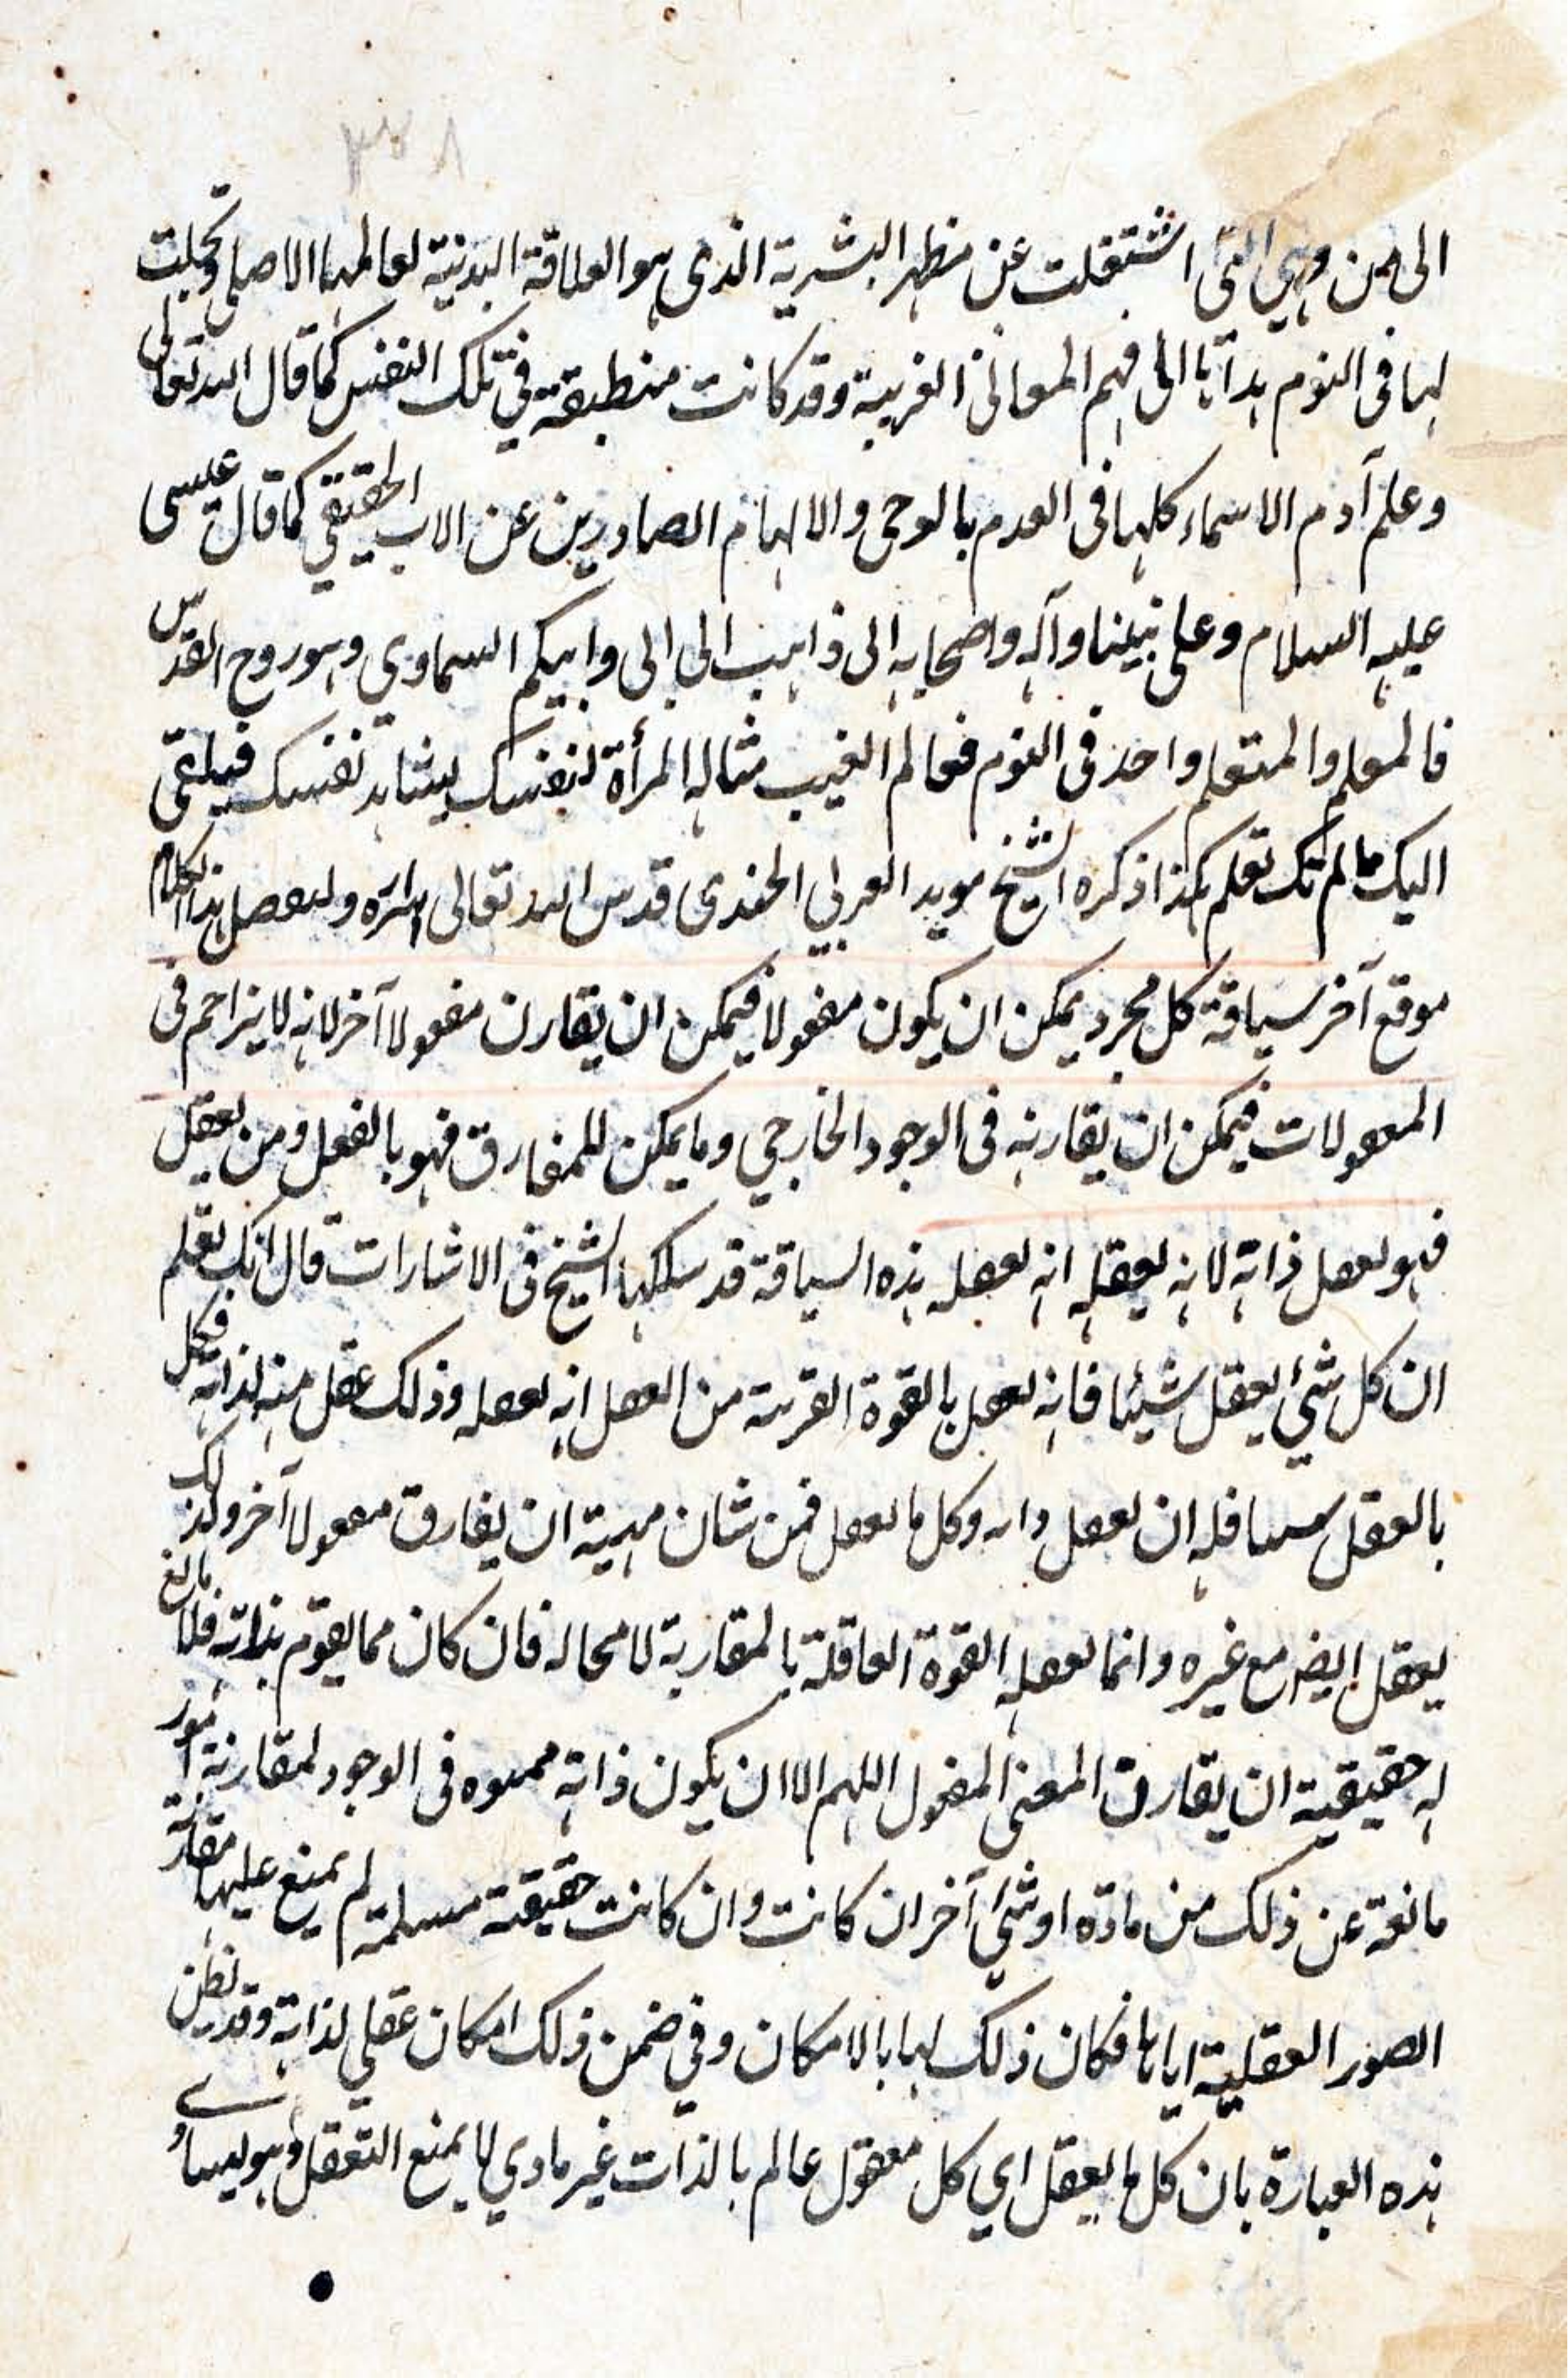 ٣٠٨
الى همن وهي التى اشتغلت عن مظهر البشرية الذى هو العلاقة البدنية لعالمها الاصلى وتجلت
لها فى النوم بدأتا الى فهم المعانى الغريبة وقد كانت منطبقة في تلك النفس كما قال الله تعالى
وعلم آدم الاسماء كلها فى العدم بالوحى والالهام الصادرين عن الاب الحقيقي كما قال عيسى
عليه السلام وعلى نبينا وآله واصحابه الى ذاهب الى ابى وابيكم السماوى وهو روح القدس
فالمعلم والمتعلم واحد فى النوم فعالم الغيب مثاله المرأة لنفسك يشاهد نفسك فيلقى
اليك ما لم تك تعلم هكذا ذكره الشيخ مويد العربي الجندى قدس الله تعالى اسراره ولىفصل هذا الكلام
موقع آخر سياقة كل مجرد يمكن ان يكون معقولا فيمكن ان يقارن معقولا آخر لانه لا يزاحم فى
المعقولات فيمكن ان يقارنه فى الوجود الخارجي وما يمكن للمفارق فهو بالفعل ومن يعقل
فهو يعقل ذاته لانه يعقله انه يعقله هذه السياقة قد سلكها الشيخ فى الاشارات قال انك تعلم
ان كل شئ يعقل شيئا فانه يعقل بالقوة القريبة من العقل انه يعقله وذلك عقل منه لذاته فكل
بالعقل سسا فله ان يعقل ذاته وكل ما يعقل فمن شان مهيته ان يفارق معقولا آخر ولذلك
يعقل ايضا مع غيره وانما يعقله القوة العاقلة بالمقارنة لا محاله فان كان مما يقوم بذاته فلا مانع
له حقيقية ان يقارن المعنى المعقول اللهم الا ان يكون ذاته ممنوه فى الوجود لمقارنة امور
مانعة عن ذلك من مادة او شئ آخر ان كانت وان كانت حقيقة مسلمة لم يمنع عليها مقارنة
الصور العقلية اياها فكان ذلك لها بالامكان وفي ضمن ذلك امكان عقلي لذاته وقد يظن
هذه العبارة بان كل ما يعقل اي كل معقول عالم بالذات غير مادي لا يمنع التعقل وهو يساوي